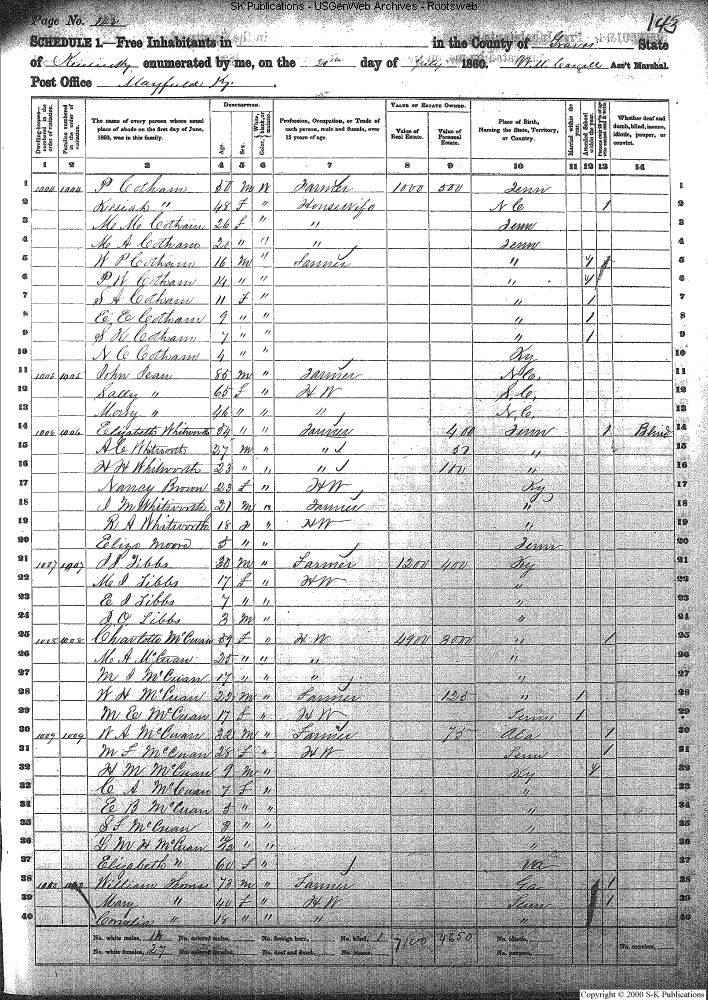 SK Publications - USGenWeb Archives - Rootsweb
Page No. 142
143
SCHEDULE 1.—Free Inhabitants in in the County of Graves State
of Kentucky enumerated by me, on the 20th day of July 1860. Ass't Marshal.
Post Office Mayfield Ky.
Dwelling-houses—numbered in the order of visitation.
Families numbered in the order of visitation.
The name of every person whose usual place of abode on the first day of June, 1860, was in this family.
DESCRIPTION.
Age.
Sex.
Color, White, black, or mulatto.
Profession, Occupation, or Trade of each person, male and female, over 15 years of age.
VALUE OF ESTATE OWNED.
Value of Real Estate.
Value of Personal Estate.
Place of Birth, Naming the State, Territory, or Country.
Married within the year.
Attended School within the year.
Whether deaf and dumb, blind, insane, idiotic, pauper, or convict.
1 2 3 4 5 6 7 8 9 10 11 12 13 14
1 1004 1004 P Cotham 50 M W Farmer 1000 500 Tenn 1
2 Kesiah " 48 F " Housewife N C 1 2
3 M M Cotham 26 F " " Tenn 3
4 M A Cotham 20 " " " Tenn 4
5 W P Cotham 16 M " Farmer " 5
6 P W Cotham 14 " " " 6
7 S A Cotham 11 F " " 1 7
8 E E Cotham 9 " " " 1 8
9 S K Cotham 7 " " " 1 9
10 N C Cotham 4 " " Ky 10
11 1005 1005 John Jean 85 M " Farmer N.C. 11
12 Sally " 65 F " H W S.C. 12
13 Mary " 46 " " " N.C. 13
14 1006 1006 Elizabeth Whitworth 54 " " Farmer 400 Tenn 1 Blind 14
15 A C Whitworth 27 M " " 50 " 15
16 H H Whitworth 23 " " " 100 " 16
17 Nancy Brown 23 F " H W Ky 17
18 J M Whitworth 21 M " Farmer " 18
19 R A Whitworth 18 " H W " 19
20 Eliza Moore 5 " " Tenn 20
21 1007 1007 Tibbs 30 M " Farmer 1200 400 Ky 21
22 M J Tibbs 17 F " H W " 22
23 E J Tibbs 7 " " " 23
24 Tibbs 3 M " " 24
25 1008 1008 Charlotte McCuan 59 F " H W 4900 3000 " 1 25
26 M A McCuan 25 " " " " 26
27 M J McCuan 17 " " " " 27
28 W H McCuan 22 M " Farmer 125 " 1 28
29 M E McCuan 17 F " H W Tenn 1 29
30 1009 1009 W A McCuan 32 M " Farmer 75 Ala 1 30
31 M F McCuan 28 F " H W Tenn 1 31
32 H M McCuan 9 M " Ky 32
33 C A McCuan 7 F " " 33
34 E B McCuan 5 " " " 34
35 S F McCuan 3 " " " 35
36 G M H McCuan " " " 36
37 Elizabeth " 60 F " Va 37
38 William Thomas 73 M " Farmer Ga 1 38
39 Mary " 40 F " H W Tenn 1 39
40 Cornelia " 18 " " " " 40
No. white males, 18 No. colored males, No. foreign born, No. blind, 1 7100 4650 No. idiotic,
No. white females, 27 No. colored females, No. deaf and dumb, No. insane, No. paupers, No. convicts,
Copyright © 2000 S-K Publications